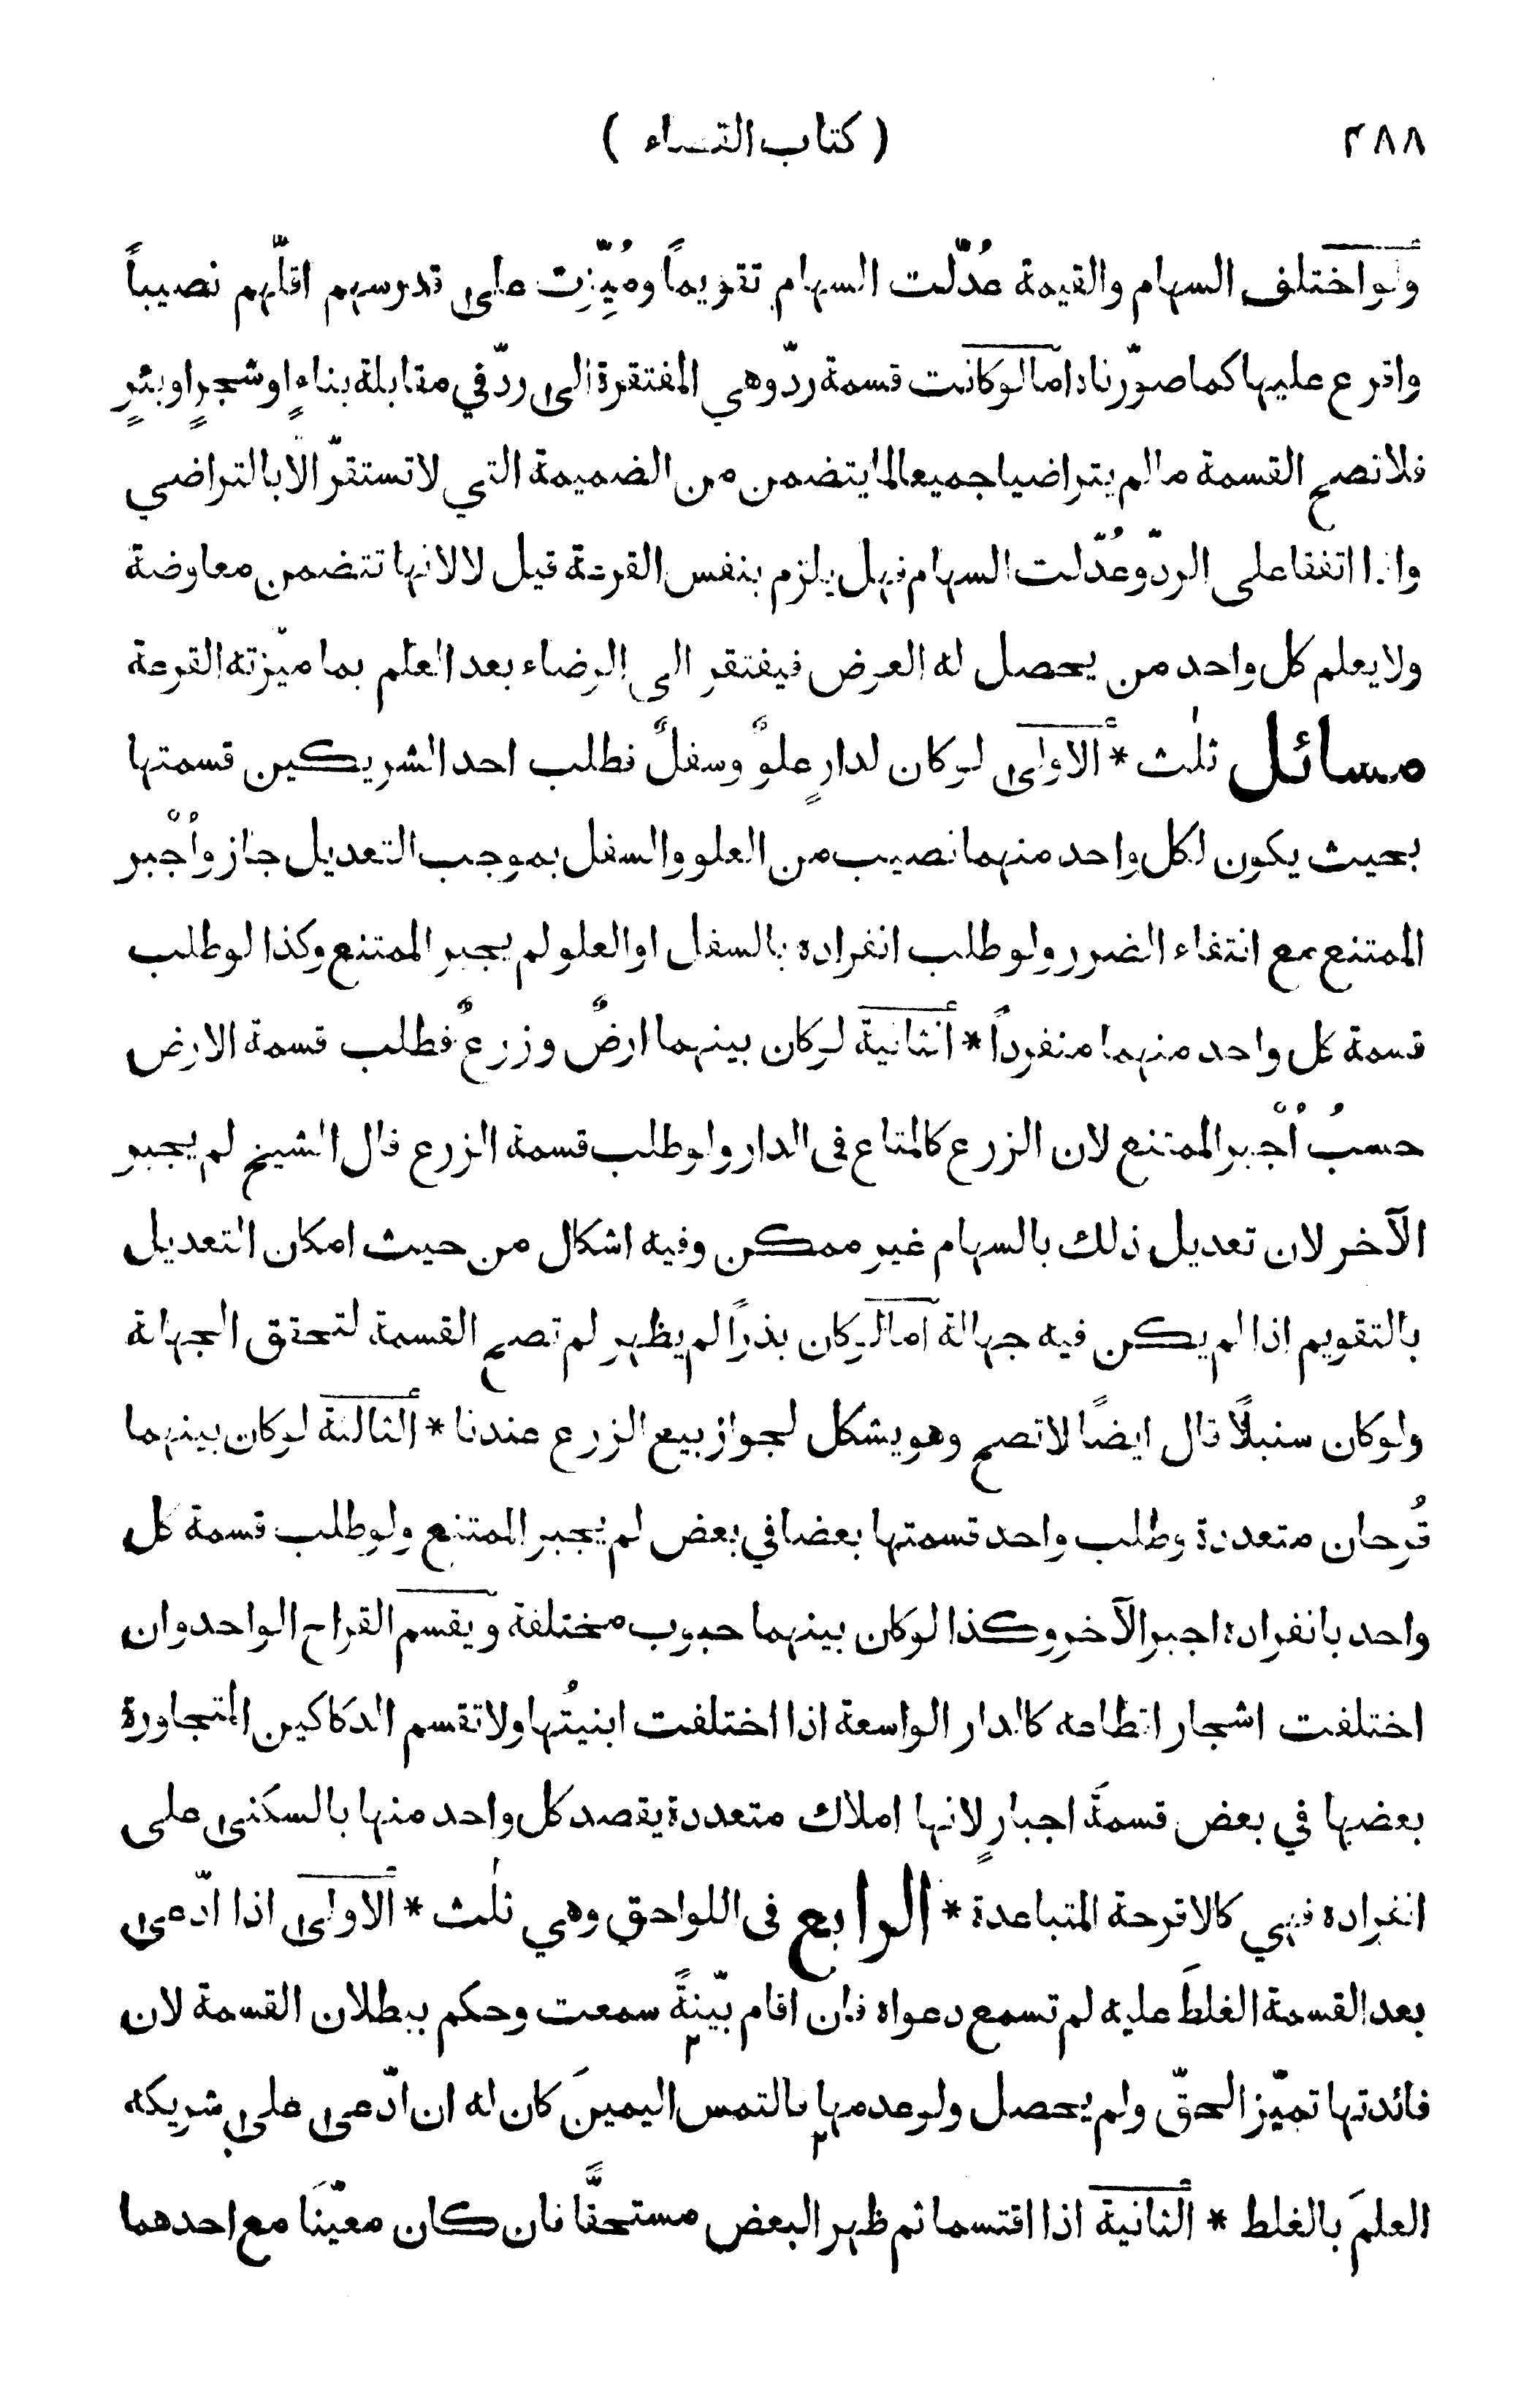 ٢٨٨ ( كتاب القضاء )
ولو اختلف السهام والقيمة عُدّلت السهام تقويماً ومُيِّزت على قدر سهم اقلّهم نصيباً
واقرع عليها كما صوّرناه امّا لو كانت قسمة ردّ وهي المفتقرة الى ردّ في مقابلة بناءٍ او شجرٍ او بئرٍ
فلا تصح القسمة ما لم يتراضيا جميعا لما يتضمن من الضميمة التي لا تستقرّ الّا بالتراضي
واذا اتفقا على الردّ وعُدّلت السهام فهل يلزم بنفس القرعة قيل لا لانها تتضمن معاوضة
ولا يعلم كل واحد من يحصل له العوض فيفتقر الى الرضاء بعد العلم بما ميّزته القرعة
مسائل ثلٰث * الاولى لو كان لدارٍ علوٌ وسفلٌ فطلب احد الشريكين قسمتها
بحيث يكون لكل واحد منهما نصيب من العلو والسفل بموجب التعديل جاز واُجْبر
الممتنع مع انتفاء الضرر ولو طلب انفراده بالسفل او العلو لم يجبر الممتنع وكذا لو طلب
قسمة كل واحد منهما منفرداً * الثانية لو كان بينهما ارضٌ وزرعٌ فطلب قسمة الارض
حسبُ اُجْبر الممتنع لان الزرع كالمتاع في الدار ولو طلب قسمة الزرع قال الشيخ لم يجبر
الآخر لان تعديل ذلك بالسهام غير ممكن وفيه اشكال من حيث امكان التعديل
بالتقويم اذا لم يكن فيه جهالة اما لو كان بذراً لم يظهر لم تصح القسمة لتحقق الجهالة
ولو كان سنبلًا قال ايضًا لا تصح وهو يشكل لجواز بيع الزرع عندنا * الثالثة لو كان بينهما
قُرحان متعددة وطلب واحد قسمتها بعضا في بعض لم يُجبر الممتنع ولو طلب قسمة كل
واحد بانفراده اجبر الآخر وكذا لو كان بينهما حبوب مختلفة ويقسم القراح الواحد وان
اختلفت اشجار اقطاعه كالدار الواسعة اذا اختلفت ابنيتُها ولا تقسم الدكاكين المتجاورة
بعضها في بعض قسمةَ اجبارٍ لانها املاك متعددة يقصد كل واحد منها بالسكنى على
انفراده فهي كالاقرحة المتباعدة * الرابع في اللواحق وهي ثلٰث * الاولى اذا ادّعى
بعد القسمة الغلطَ عليه لم تسمع دعواه فان اقام بيّنةً سمعت وحكم ببطلان القسمة لان
فائدتها تميّز الحقّ ولم يحصل ولو عدمها بالتمس اليمينَ كان له ان ادّعى على شريكه
العلمَ بالغلط * الثانية اذا اقتسما ثم ظهر البعض مستحقًّا فان كان معيّنَا مع احدهما